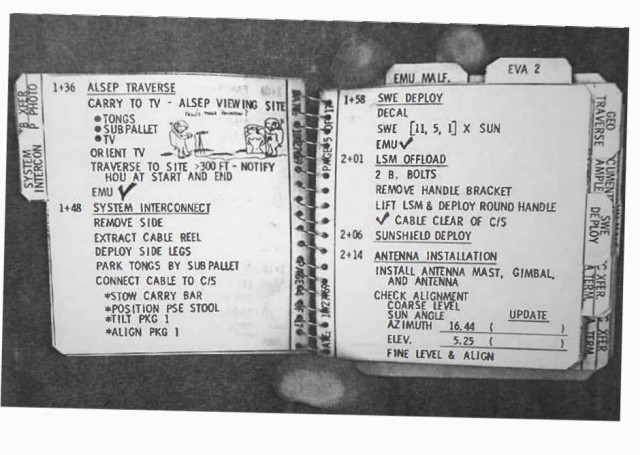 1+36 ALSEP TRAVERSE
CARRY TO TV - ALSEP VIEWING SITE
•TONGS
•SUBPALLET
•TV
ORIENT TV
TRAVERSE TO SITE >300 FT - NOTIFY
HOU AT START AND END
EMU ✓
1+48 SYSTEM INTERCONNECT
REMOVE SIDE
EXTRACT CABLE REEL
DEPLOY SIDE LEGS
PARK TONGS BY SUBPALLET
CONNECT CABLE TO C/S
*STOW CARRY BAR
*POSITION PSE STOOL
*TILT PKG 1
*ALIGN PKG 1
B XFER
P PHOTO
SYSTEM
INTERCON
EMU MALF.
EVA 2
1+58 SWE DEPLOY
DECAL
SWE [11, 5, 1] X SUN
EMU ✓
2+01 LSM OFFLOAD
2 B. BOLTS
REMOVE HANDLE BRACKET
LIFT LSM & DEPLOY ROUND HANDLE
✓ CABLE CLEAR OF C/S
2+06 SUNSHIELD DEPLOY
2+14 ANTENNA INSTALLATION
INSTALL ANTENNA MAST, GIMBAL,
AND ANTENNA
CHECK ALIGNMENT
COARSE LEVEL
SUN ANGLE UPDATE
AZIMUTH 16.44 ( )
ELEV. 5.25 ( )
FINE LEVEL & ALIGN
GEO
TRAVERSE
SWE
DEPLOY
XFER
A TERM.
XFER
A TERM.